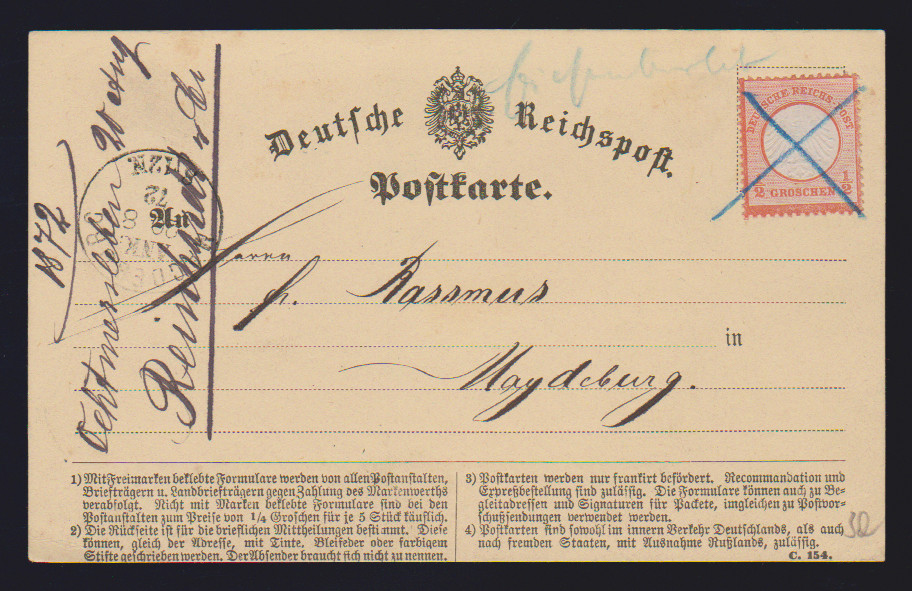 Deutsche Reichspost.
Postkarte.
DEUTSCHE REICHS-POST
1/2 GROSCHEN 1/2
An
Herrn
H. Rassmus
in
Magdeburg.
1872
Ochtmersleben 20 Aug
Reinhardt
72
1) Mit Freimarken beklebte Formulare werden von allen Postanstalten,
Briefträgern u. Landbriefträgern gegen Zahlung des Markenwerths
verabfolgt. Nicht mit Marken beklebte Formulare sind bei den
Postanstalten zum Preise von 1/4 Groschen für je 5 Stück käuflich.
2) Die Rückseite ist für die brieflichen Mittheilungen bestimmt. Diese
können, gleich der Adresse, mit Tinte. Bleifeder oder farbigem
Stifte geschrieben werden. Der Absender braucht sich nicht zu nennen.
3) Postkarten werden nur frankirt befördert. Recommandation und
Expreßbestellung sind zulässig. Die Formulare können auch zu Be-
gleitadressen und Signaturen für Packete, imgleichen zu Postvor-
schußsendungen verwendet werden.
4) Postkarten sind sowohl im innern Verkehr Deutschlands, als auch
nach fremden Staaten, mit Ausnahme Rußlands, zulässig.
C. 154.